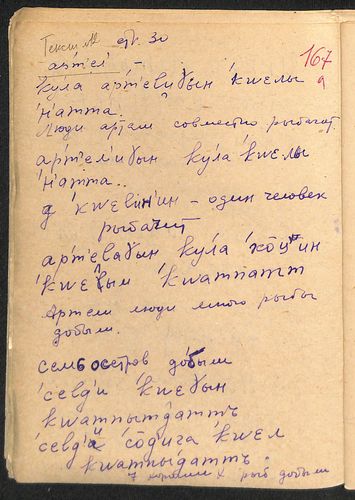 Текст №1 стр. 30
167
артел' –
кула арт'евиɣын 'кwелы
'н'атта. а
Люди артели совместно рыбачат
арт'ел'иɣын ку́ла 'кwелы
'н'атта..
д 'кwевiн'ин – один человек
рыбачит
арт'еваɣын ку́ла 'ко̄цин
'кwеɣын 'кwатпатт
Артели люди много рыбы
добыли.
семь осетров добыли
'севд'и 'кwеɣын
кwатпыт'д'аттъ
'севд'и 'со̄д'ига 'кwел
кwатпыд'аттъ.
7 хороших рыб добыли